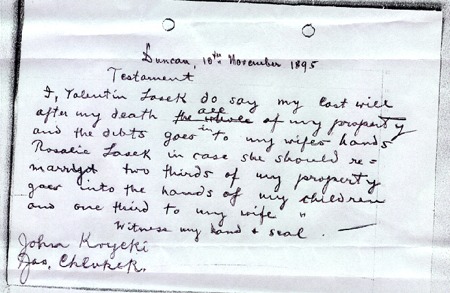 Duncan, 10th November 1895
Testament
I, Valentin Lasek do say my last will
after my death the whole all of my property
and the debts goes in to my wifes hands
Rosalie Lasek in case she should re=
marryd two thirds of my property
goes into the hands of my children
and one third to my wife "
Witness my hand & seal.
John Krycki
Jos.